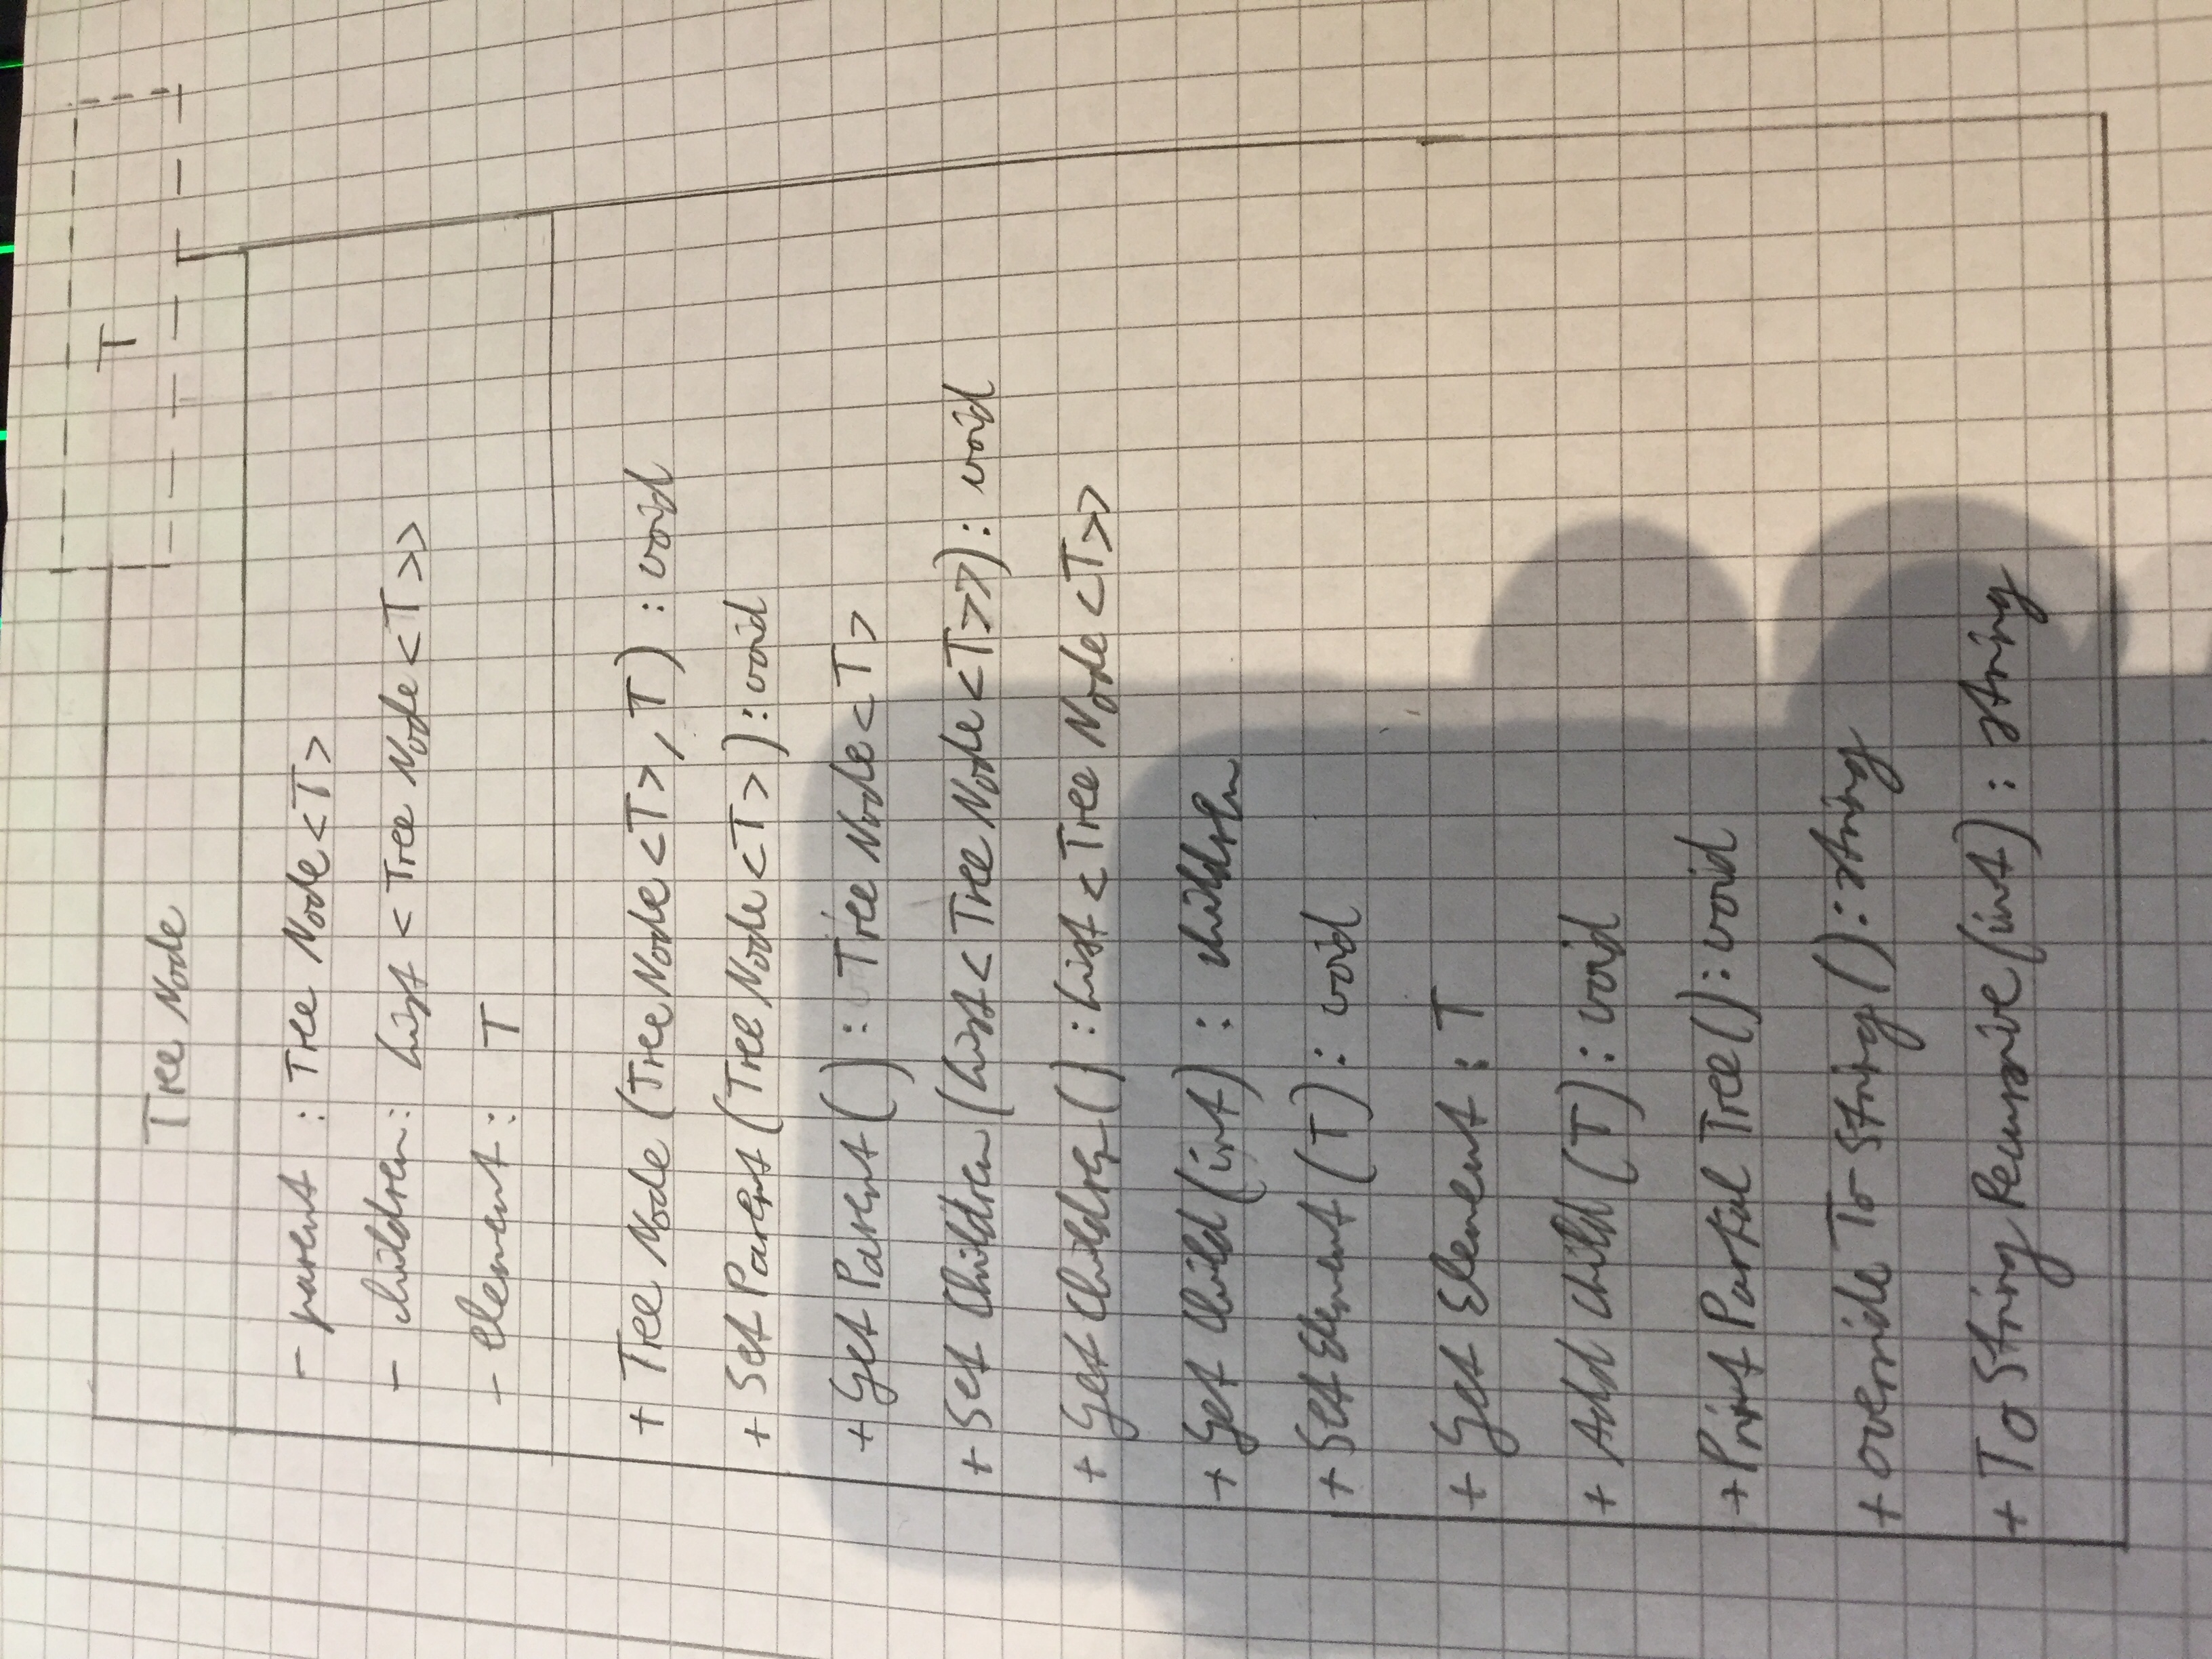 T
Tree Node
- parent : Tree Node<T>
- children: List < Tree Node<T>>
- element: T
+ Tree Node (Tree Node<T>, T) : void
+ Set Parent (Tree Node <T>) : void
+ Get Parent ( ) : Tree Node <T>
+ Set Children (List< Tree Node <T>>) : void
+ Get Children ( ) : List <Tree Node <T>>
+ Get Child (int) : children
+ Set Element (T) : void
+ Get Element : T
+ Add Child (T) : void
+ Print Partial Tree () : void
+ override To String () : string
+ To String Recursive (int) : string